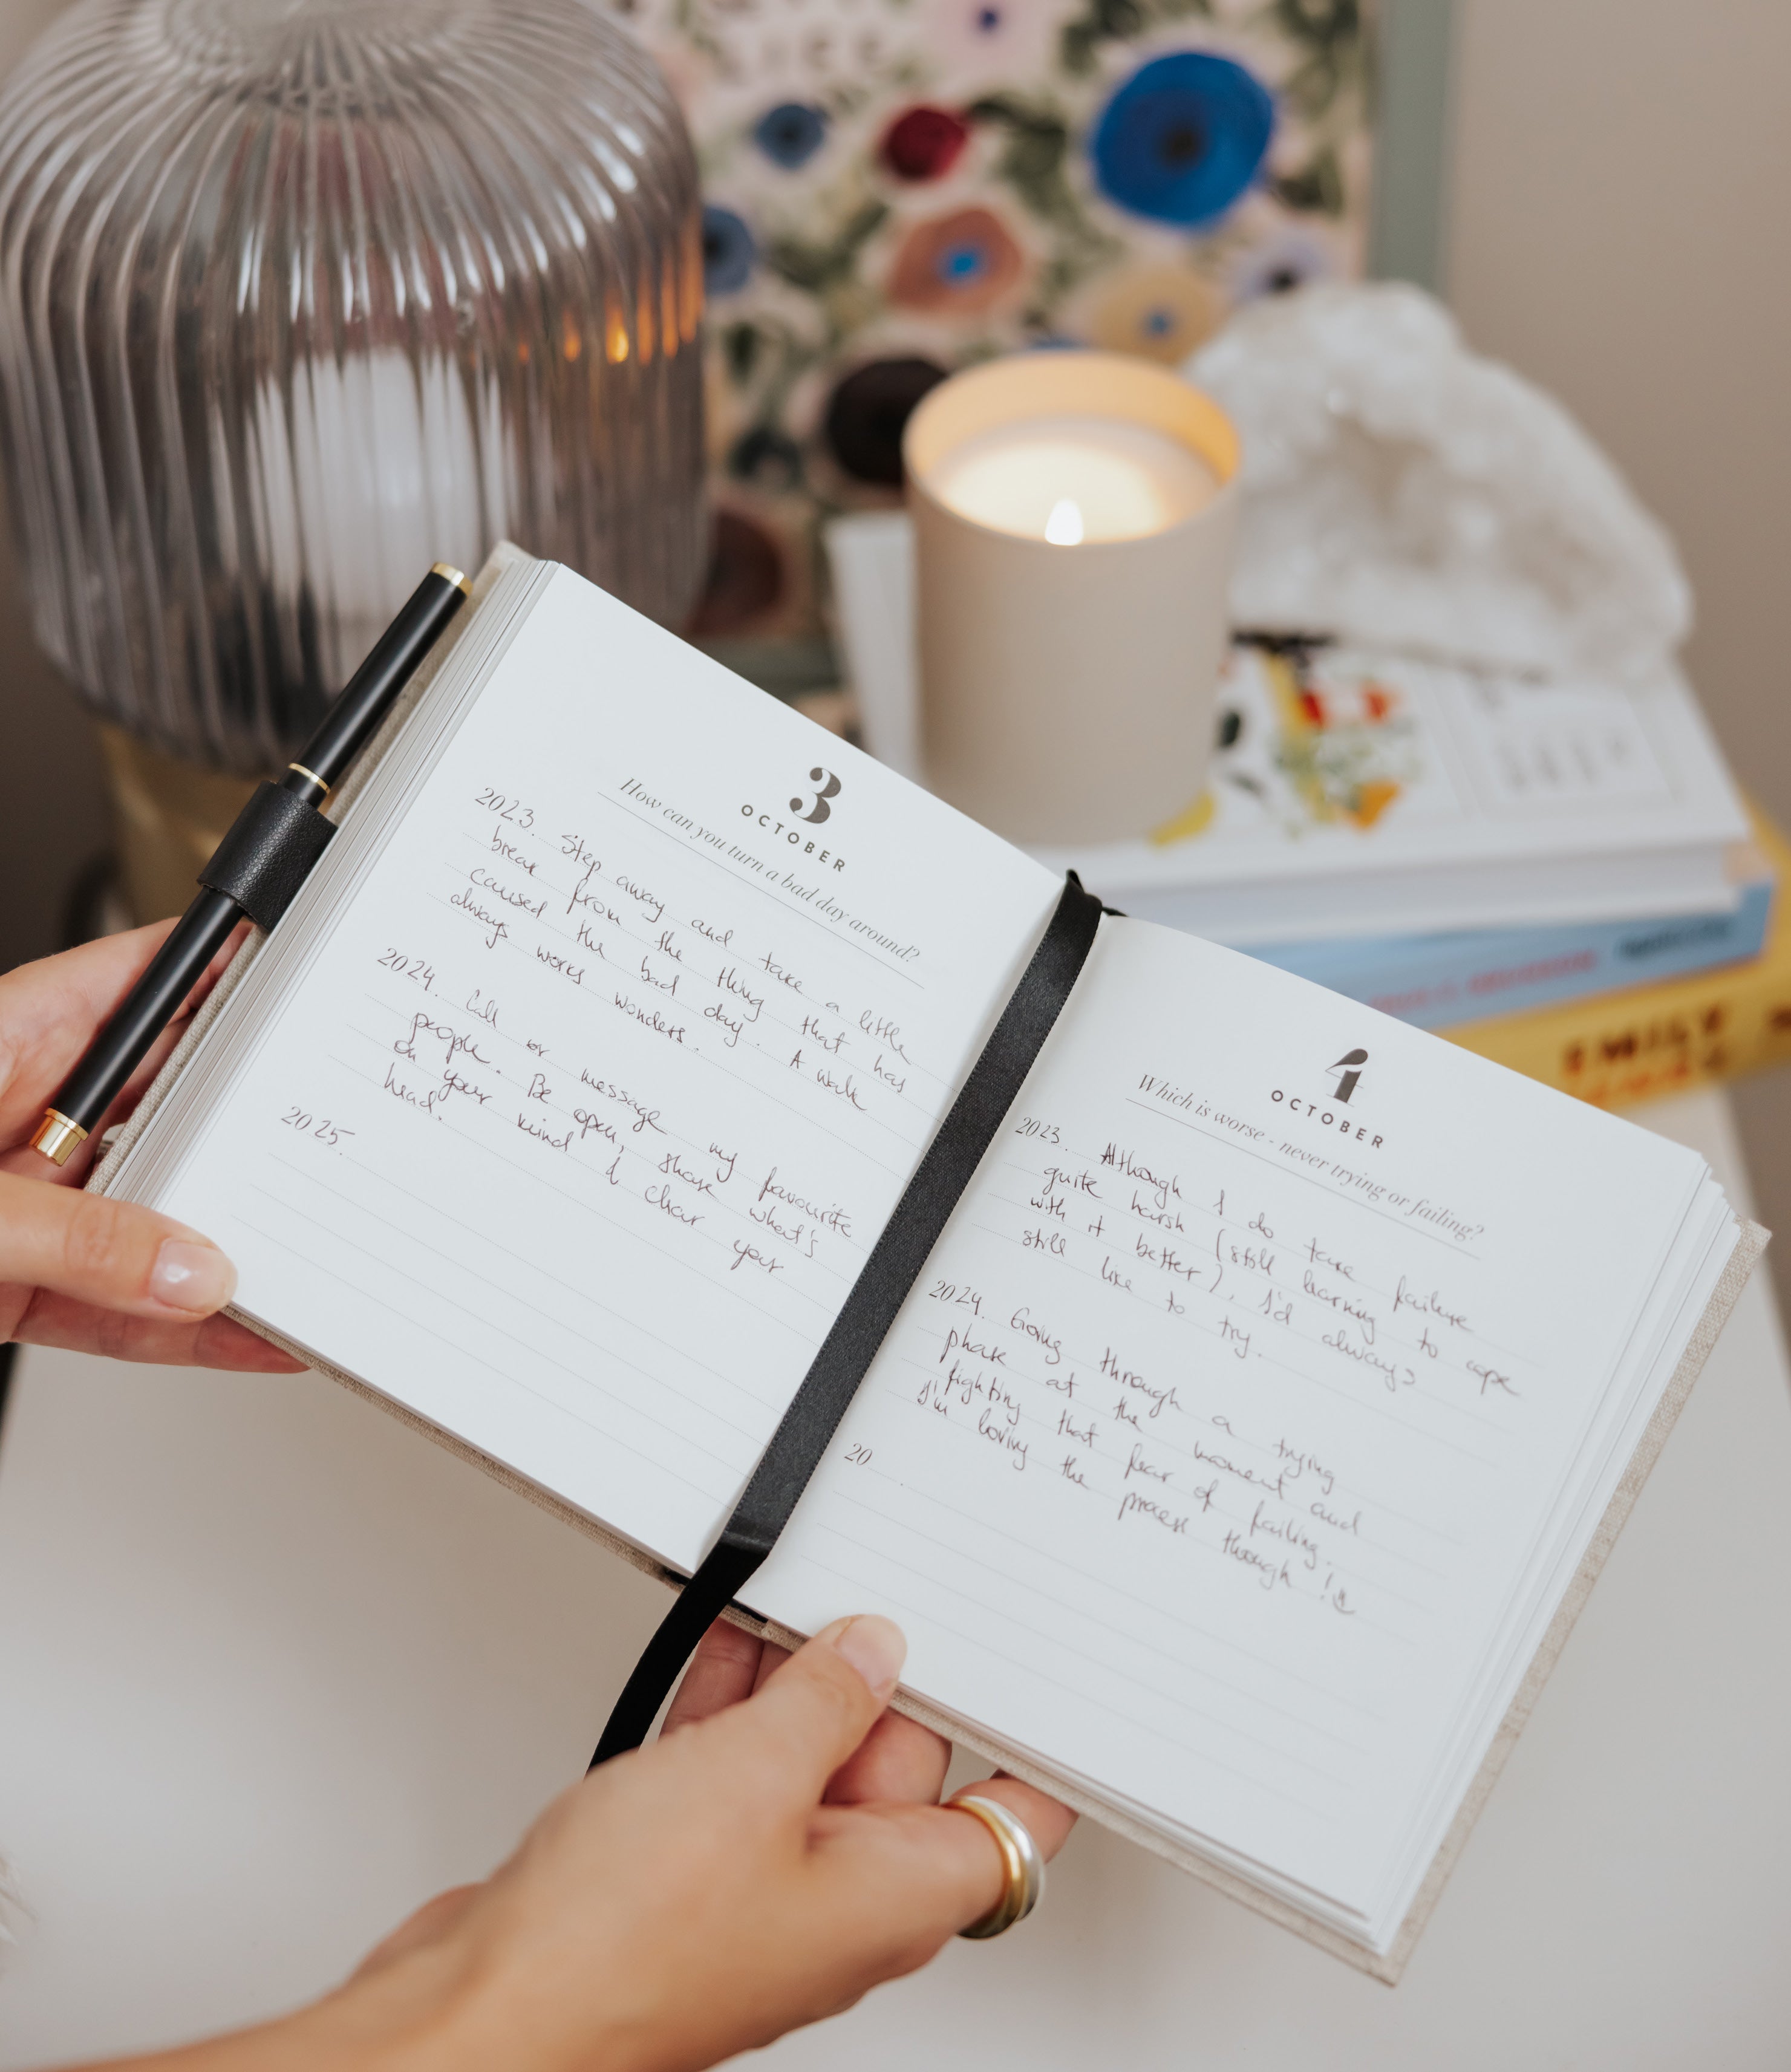 3
OCTOBER
How can you turn a bad day around?
2023. Step away and take a little
break from the thing that has
caused the bad day. A walk
always works wonders.
2024. Call or message my favourite
people. Be open, share what's
on your mind & clear your
head.
2025.
4
OCTOBER
Which is worse - never trying or failing?
2023. Although I do take failure
quite harsh (still learning to cope
with it better), I'd always
still like to try.
2024. Going through a trying
phase at the moment and
fighting that fear of failing.
I'm loving the process though!
20
EMILY